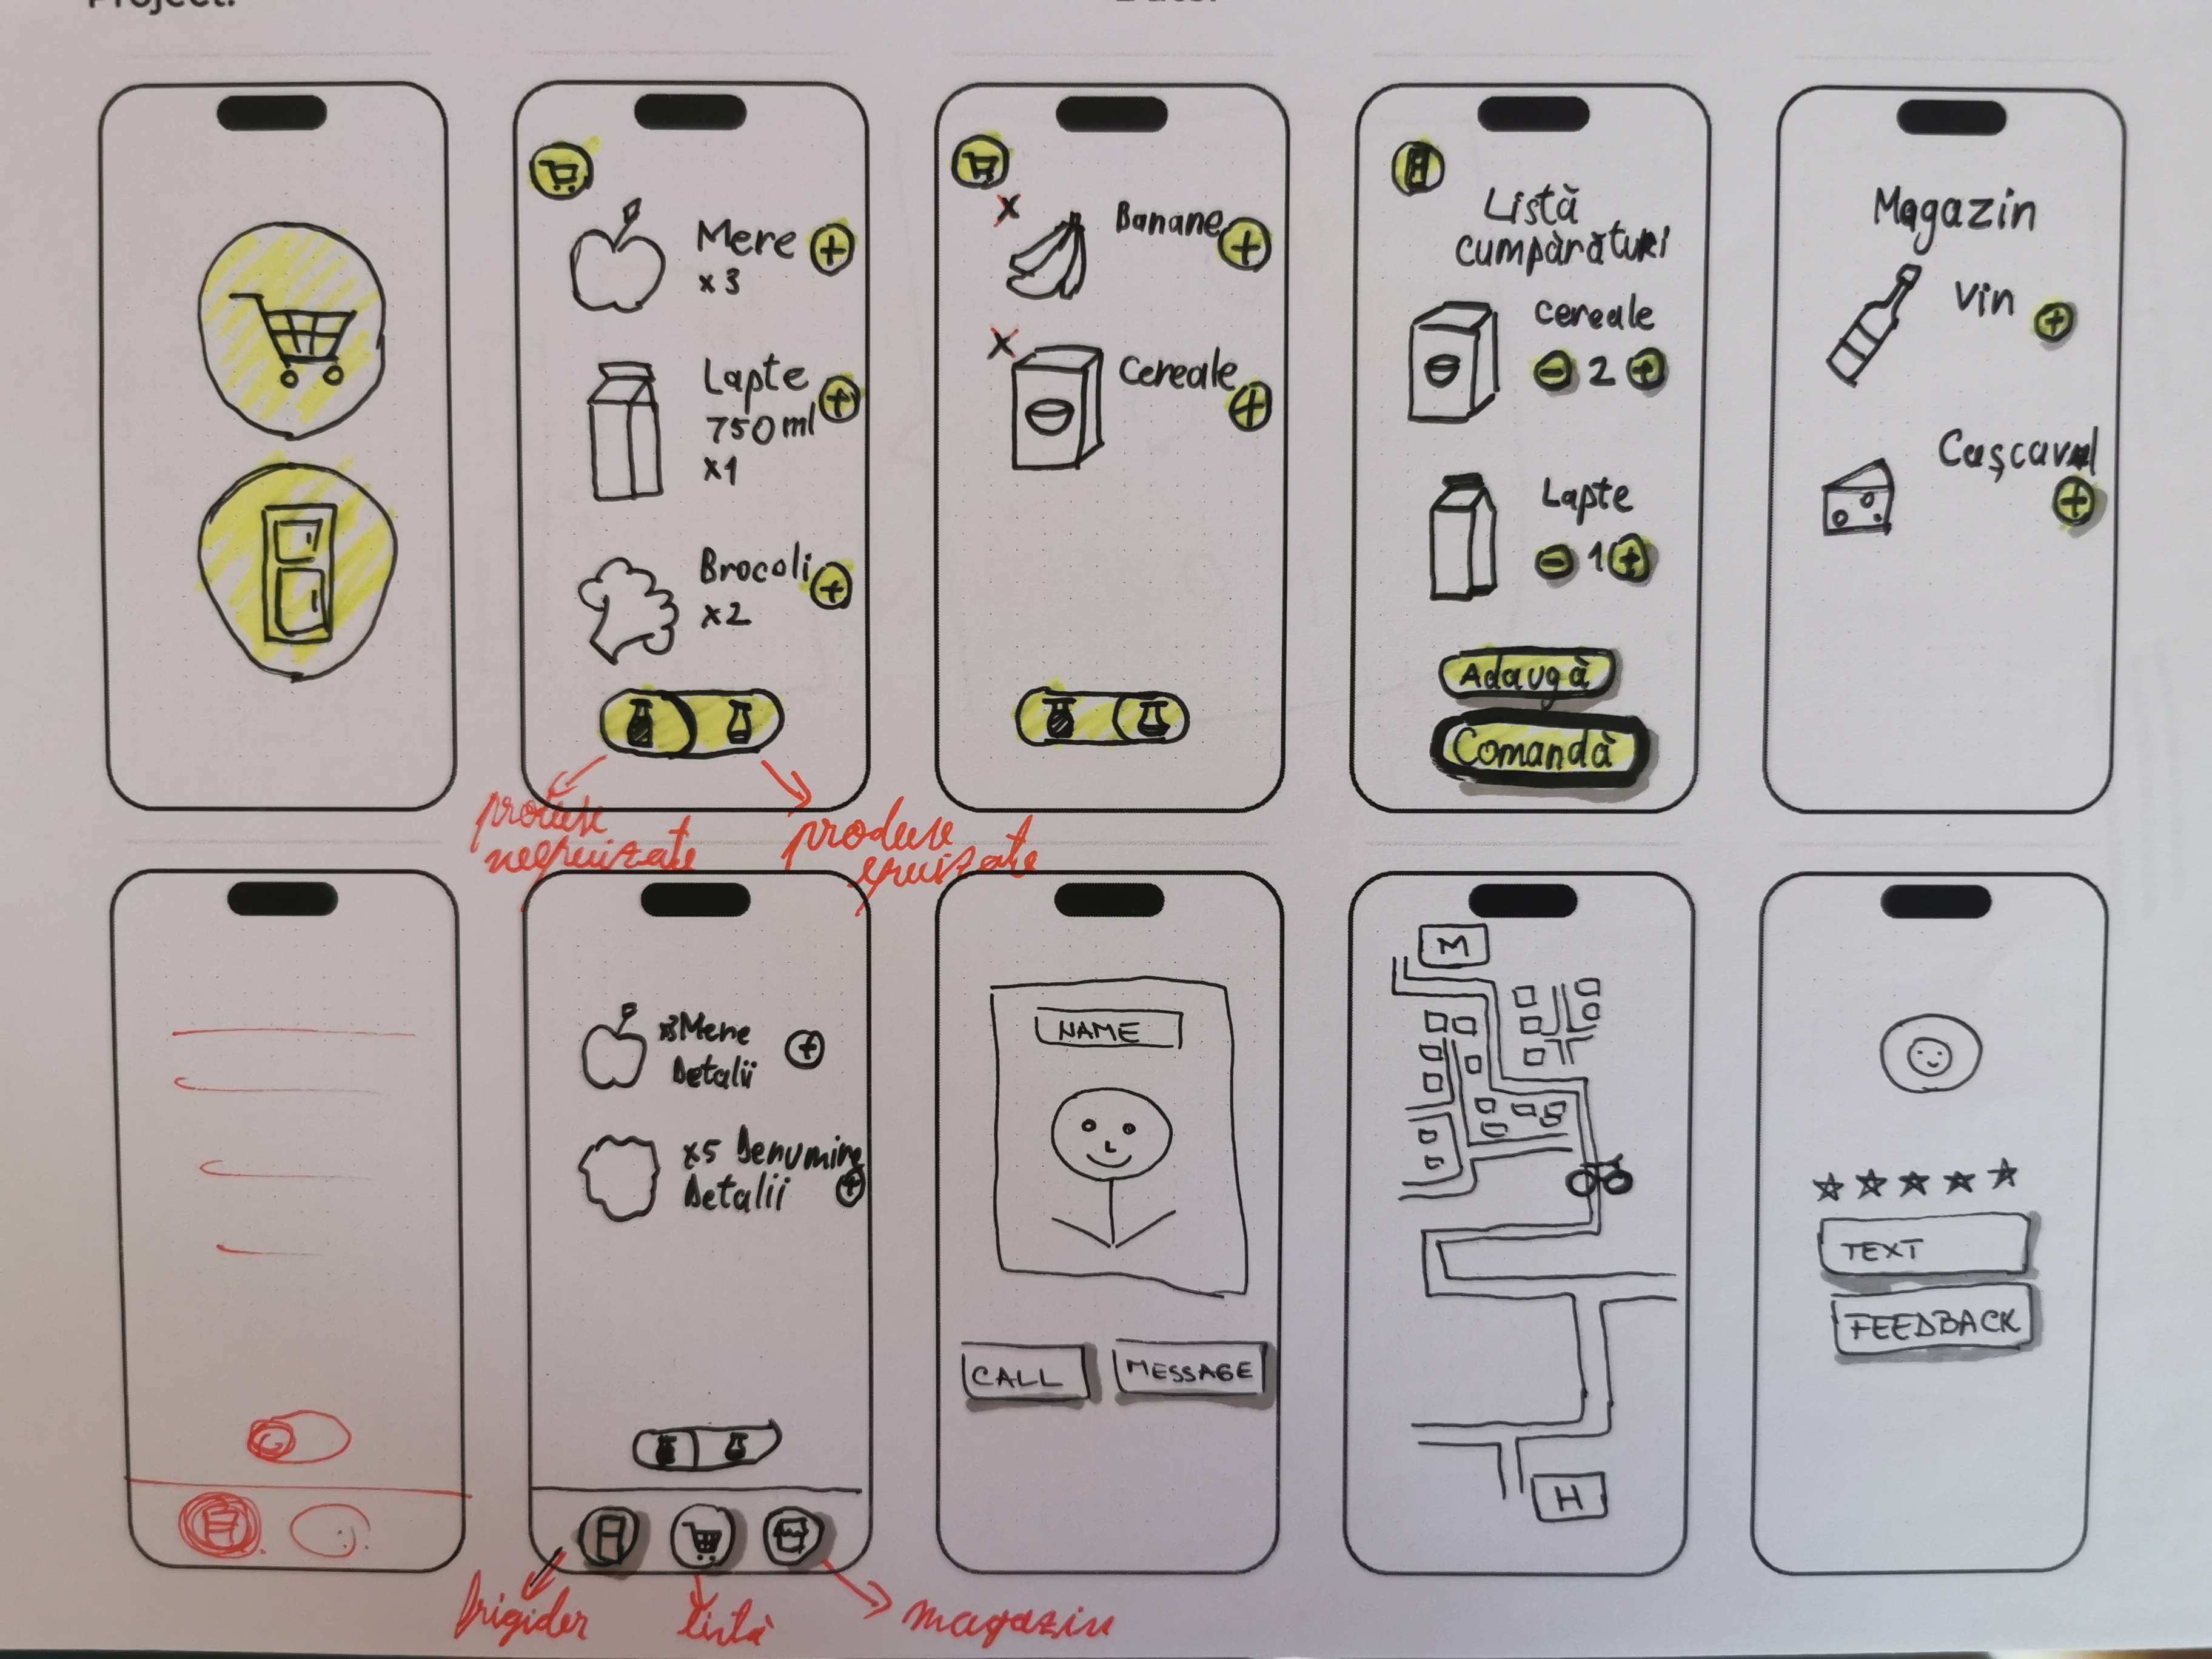 Project:
Date:
Mere
x3
Lapte
750ml
x1
Brocoli
x2
produse
neepuizate
produse
epuizate
x
Banane
x
Cereale
Listă
cumpărături
cereale
2
Lapte
1
Adaugă
Comandă
Magazin
Vin
Cașcaval
x3 Mere
Detalii
x5 Denumire
Detalii
frigider
listă
magazin
NAME
CALL
MESSAGE
M
H
TEXT
FEEDBACK